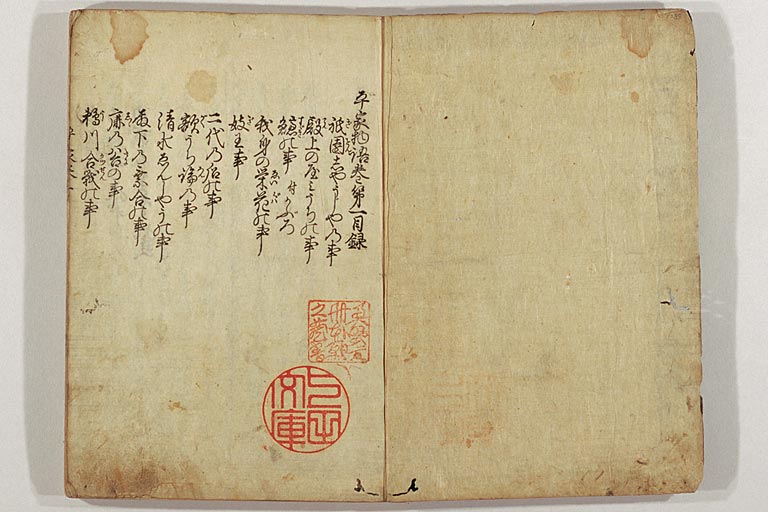 平家物語巻第一目録
祇園しやうしやの事
殿上のやみうちの事
鱸の事 付かぶろ
我身の栄花の事
妓王事
二代の后の事
額うち論の事
清水ゑんしやうの事
殿下の乗合の事
鹿の谷の事
鵜川合戦の事
文庫